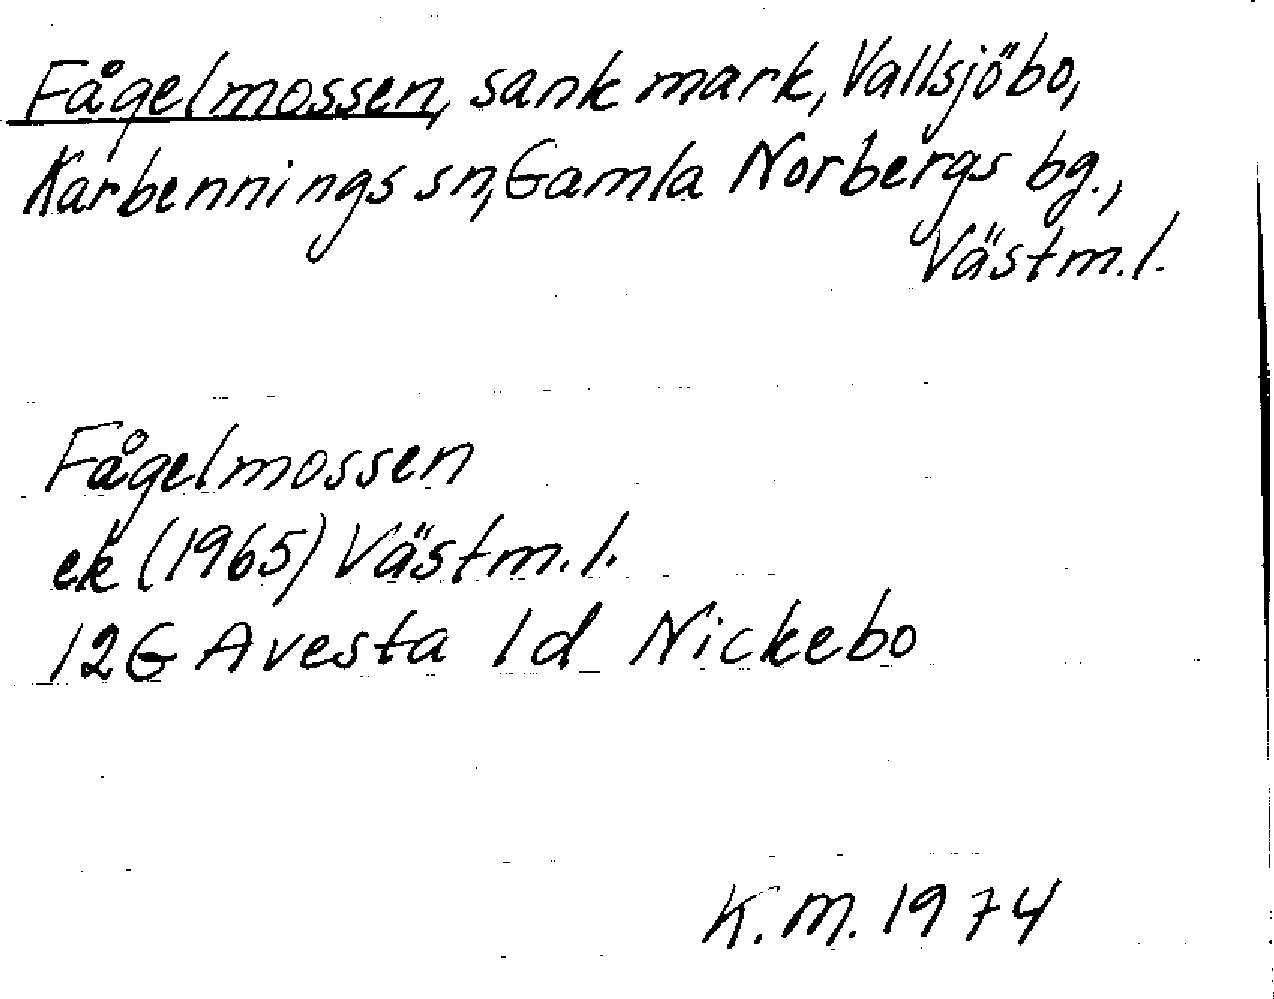 Fågelmossen, sank mark, Vallsjöbo,
Karbennings sn, Gamla Norbergs bg.,
Västm.l.
Fågelmossen
ek (1965) Västm.l.
12G Avesta 1d Nickebo
K.M. 1974